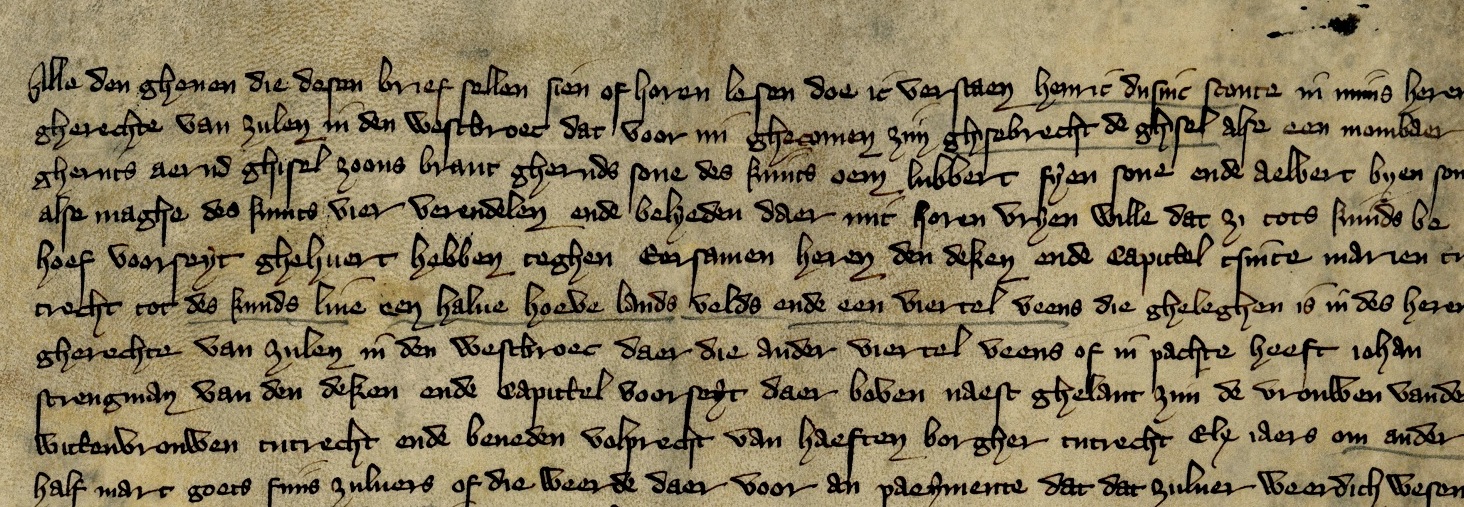 Alle den ghenen die desen brief sellen sien of horen lesen doe ic verstaen henric dusinc scoute in mijns heren
gherechte van zulen in den westbroec dat voor mi ghecomen zijn ghisebrecht de ghisel alse een mombaer
gherids aernd ghisel zoons brant gherids sone des kinds oem lubbert fyen sone ende aelbert byen son
alse maghe des kinds vier verendelen ende belyeden daer mit horen vryen wille dat zi tots kinds be
hoef voorseyt ghehuert hebben teghen eersamen heren den deken ende capittel tsinte marien tu
trecht tot des kinds live een halve hoeve lands velds ende een viertel veens die gheleghen is in des heren
gherechte van zulen in den westbroec daer die ander viertel veens of in pachte heeft johan
strengman van den deken ende capittel voorseyt daer boven naest ghelant zijn de vrouwen vanden
wittenvrouwen tutrecht ende beneden volprecht van haeften borgher tutrecht elx jaers om ander
half marc goets fijns zulvers of die weerde daer voor an payemente dat dat zulver weerdich wesen